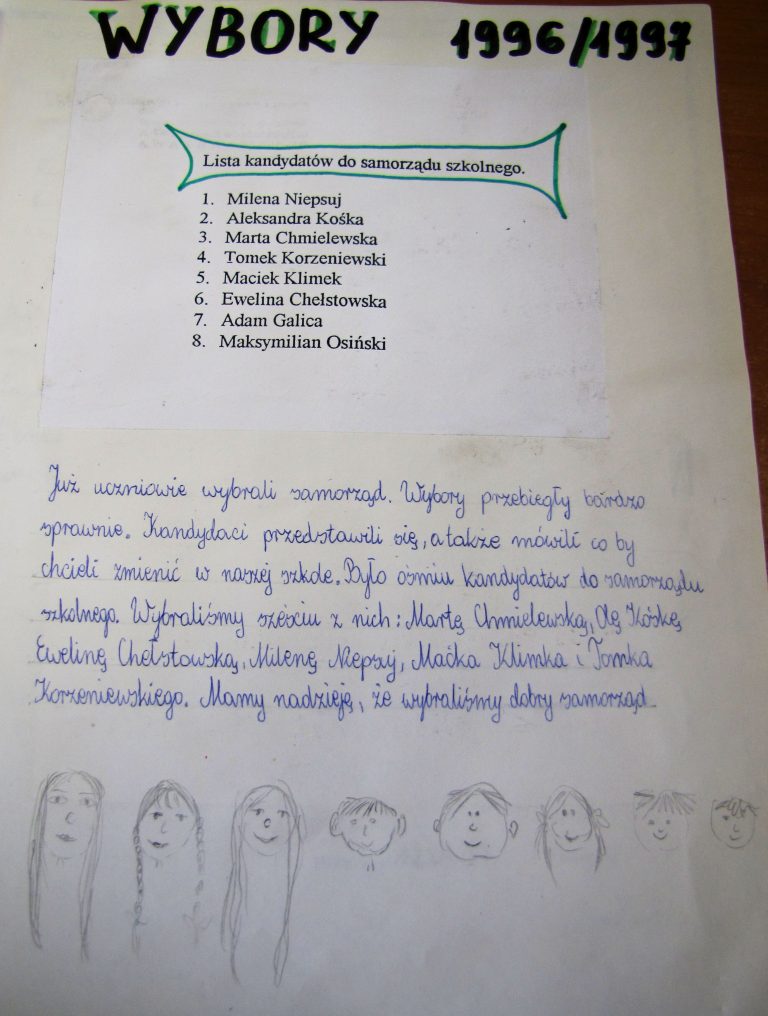 WYBORY 1996/1997
Lista kandydatów do samorządu szkolnego.
1. Milena Niepsuj
2. Aleksandra Kośka
3. Marta Chmielewska
4. Tomek Korzeniewski
5. Maciek Klimek
6. Ewelina Chełstowska
7. Adam Galica
8. Maksymilian Osiński
Już uczniowie wybrali samorząd. Wybory przebiegły bardzo
sprawnie. Kandydaci przedstawili się, a także mówili co by
chcieli zmienić w naszej szkole. Było ośmiu kandydatów do samorządu
szkolnego. Wybraliśmy sześciu z nich: Martę Chmielewską, Olę Kośkę
Ewelinę Chełstowską, Milenę Niepsuj, Maćka Klimka i Tomka
Korzeniewskiego. Mamy nadzieję, że wybraliśmy dobry samorząd.